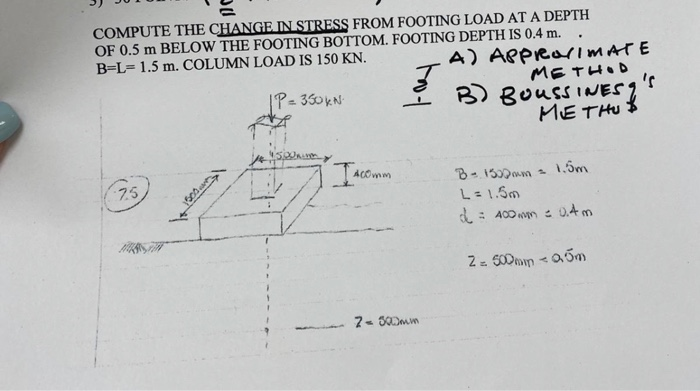 COMPUTE THE CHANGE IN STRESS FROM FOOTING LOAD AT A DEPTH
OF 0.5 m BELOW THE FOOTING BOTTOM. FOOTING DEPTH IS 0.4 m. .
B=L= 1.5 m. COLUMN LOAD IS 150 KN.
A) APPROXIMATE
METHOD
B) BOUSSINESQ'S
METHOD
P = 350KN
1500mm
400mm
7.5
1500mm
B = 1500mm = 1.5m
L = 1.5m
d = 400mm = 0.4m
Z = 500mm = 0.5m
Z = 500mm